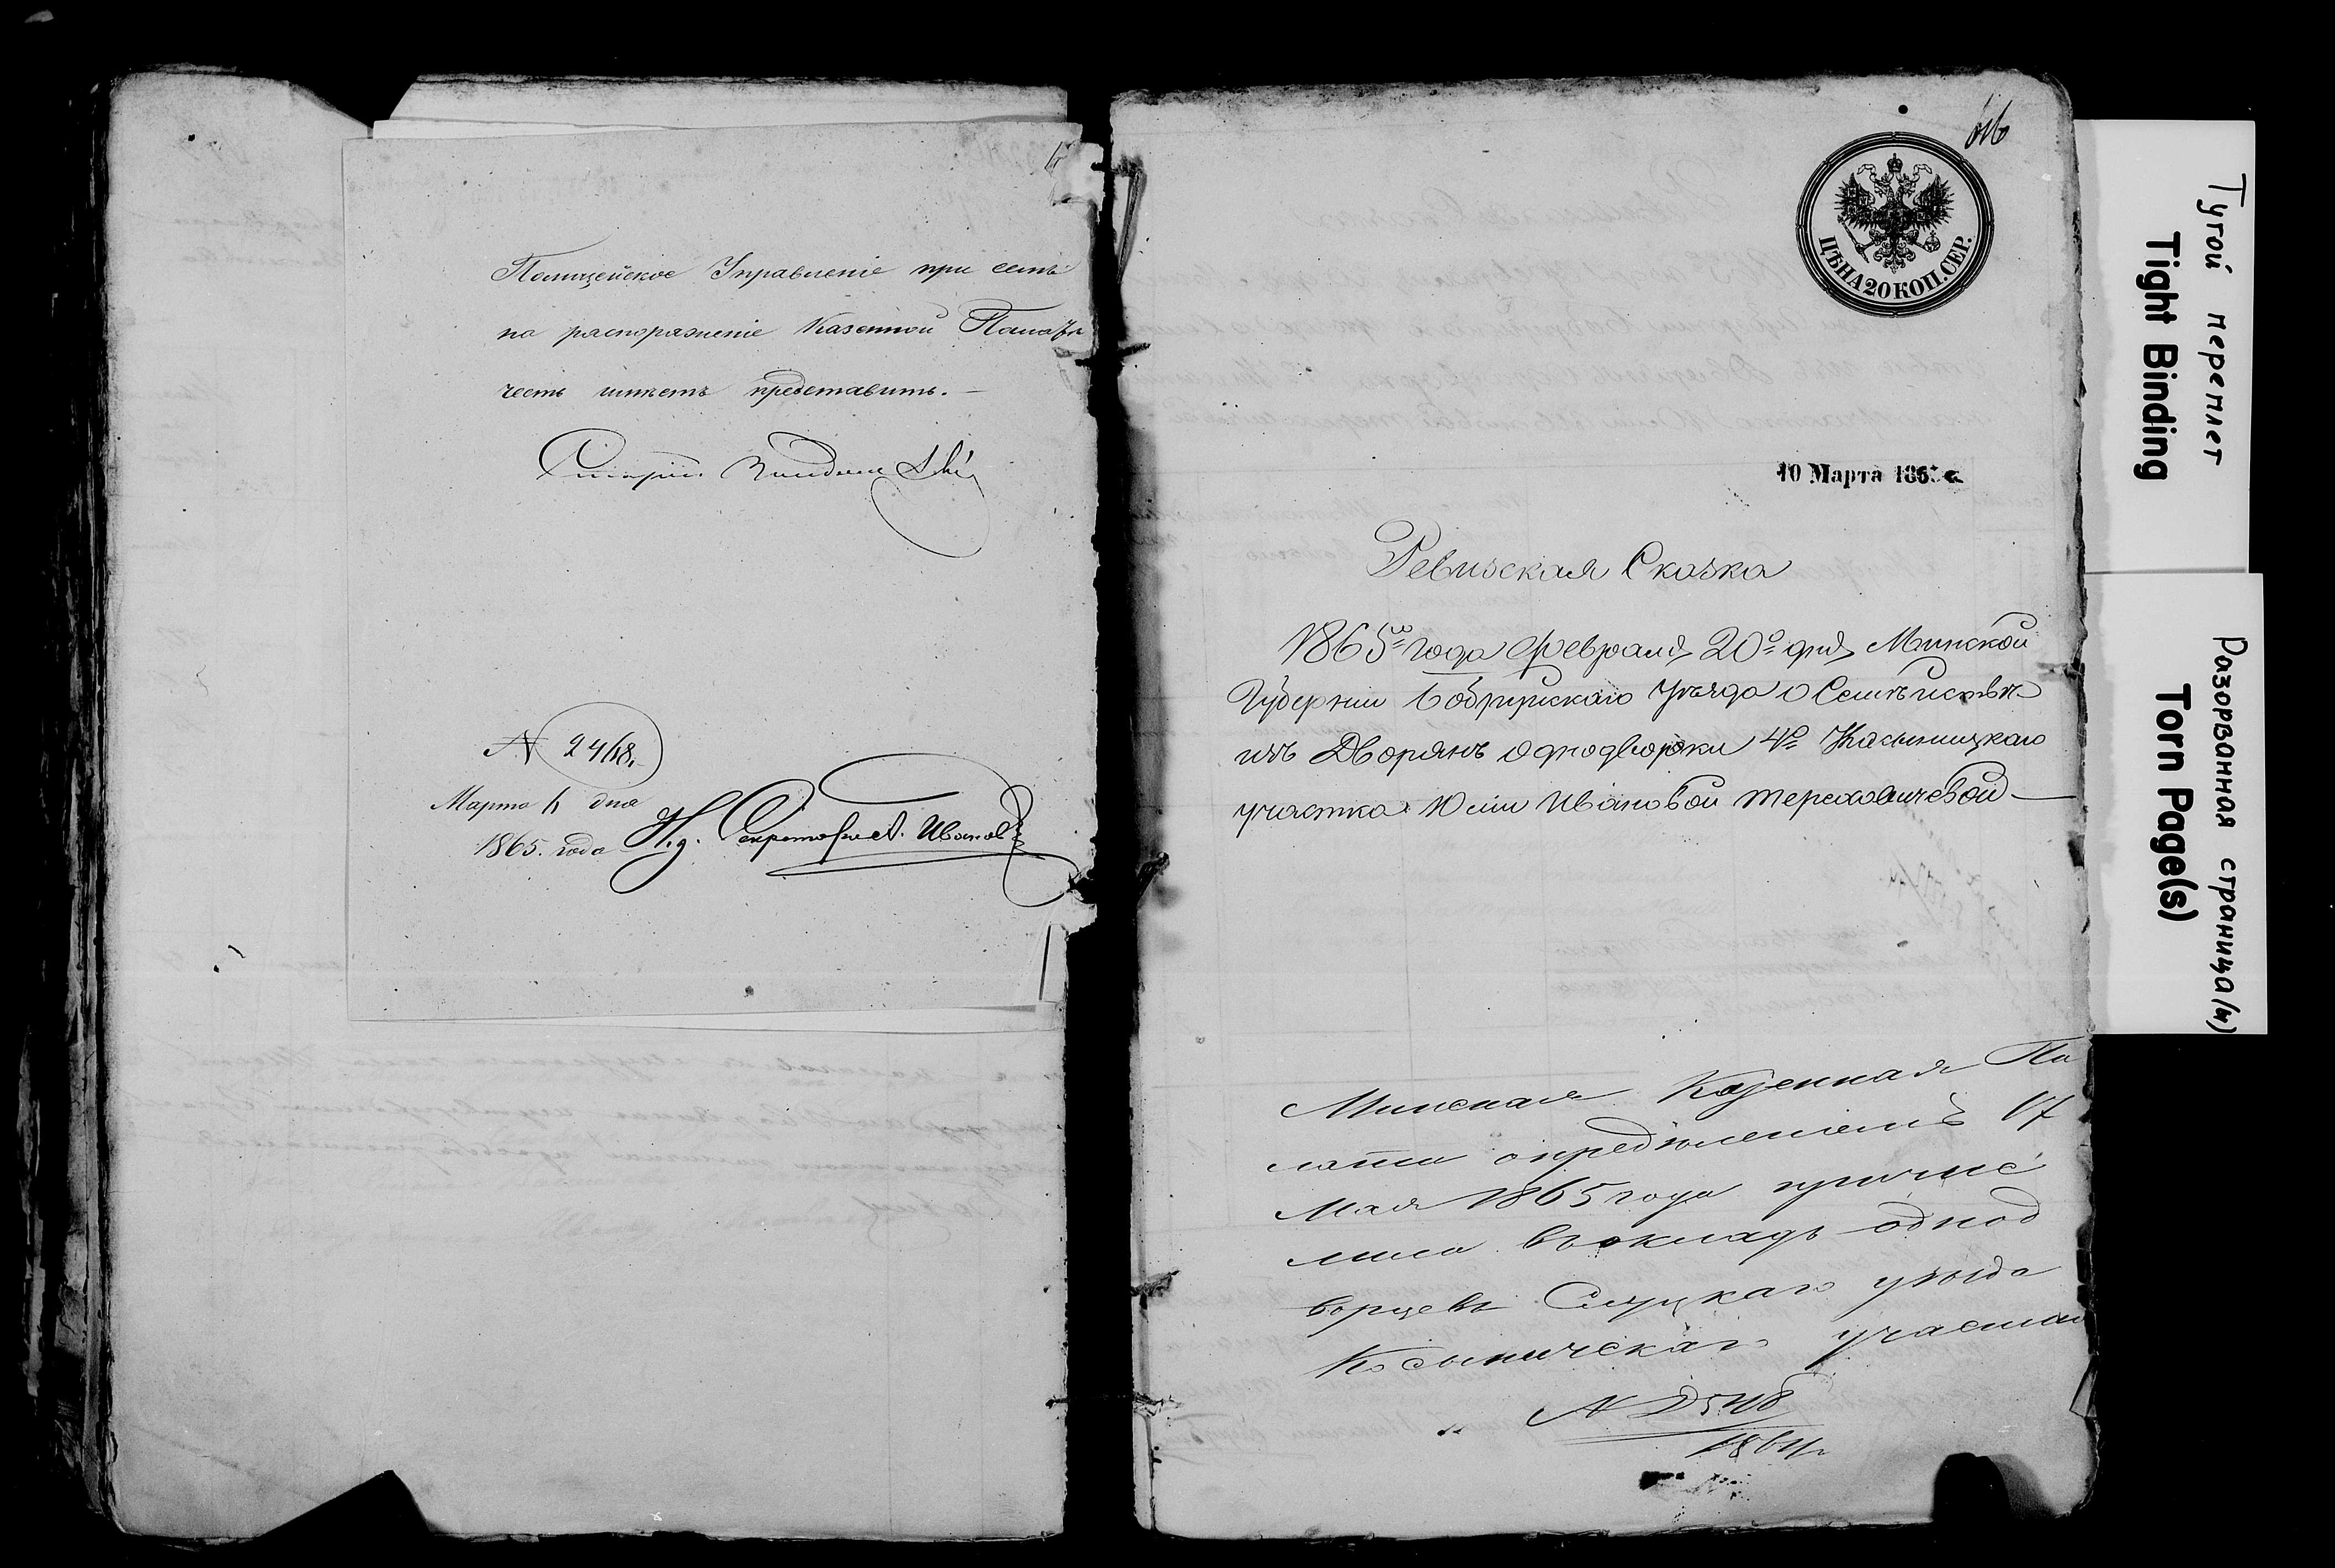 Полицейское Управленіе при семъ
на распоряженіе Казенной Палаты
честь имѣетъ представить. —
N 2468.
Марта 6 дня
1865. года
И. д. Секретаря А. Ивановъ
ЦѢНА 20 КОП. СЕР.
10 Марта 1865 г.
Ревизская Сказка
1865го года Февраля 20о дня Минской
Губерніи Бобруйскаго Уѣзда о
изъ Дворянъ однодворки 4о
участка Юліи Ивановой Тереховичевой —
Минская Казенная Па
лата опредѣленіемъ 17
Мая 1865 года причис
лила въ окладъ однод
ворцевъ Слуцкаго уѣзда
участка
N
Тугой переплет
Tight Binding
Разорванная страница(ы)
Torn Page(s)